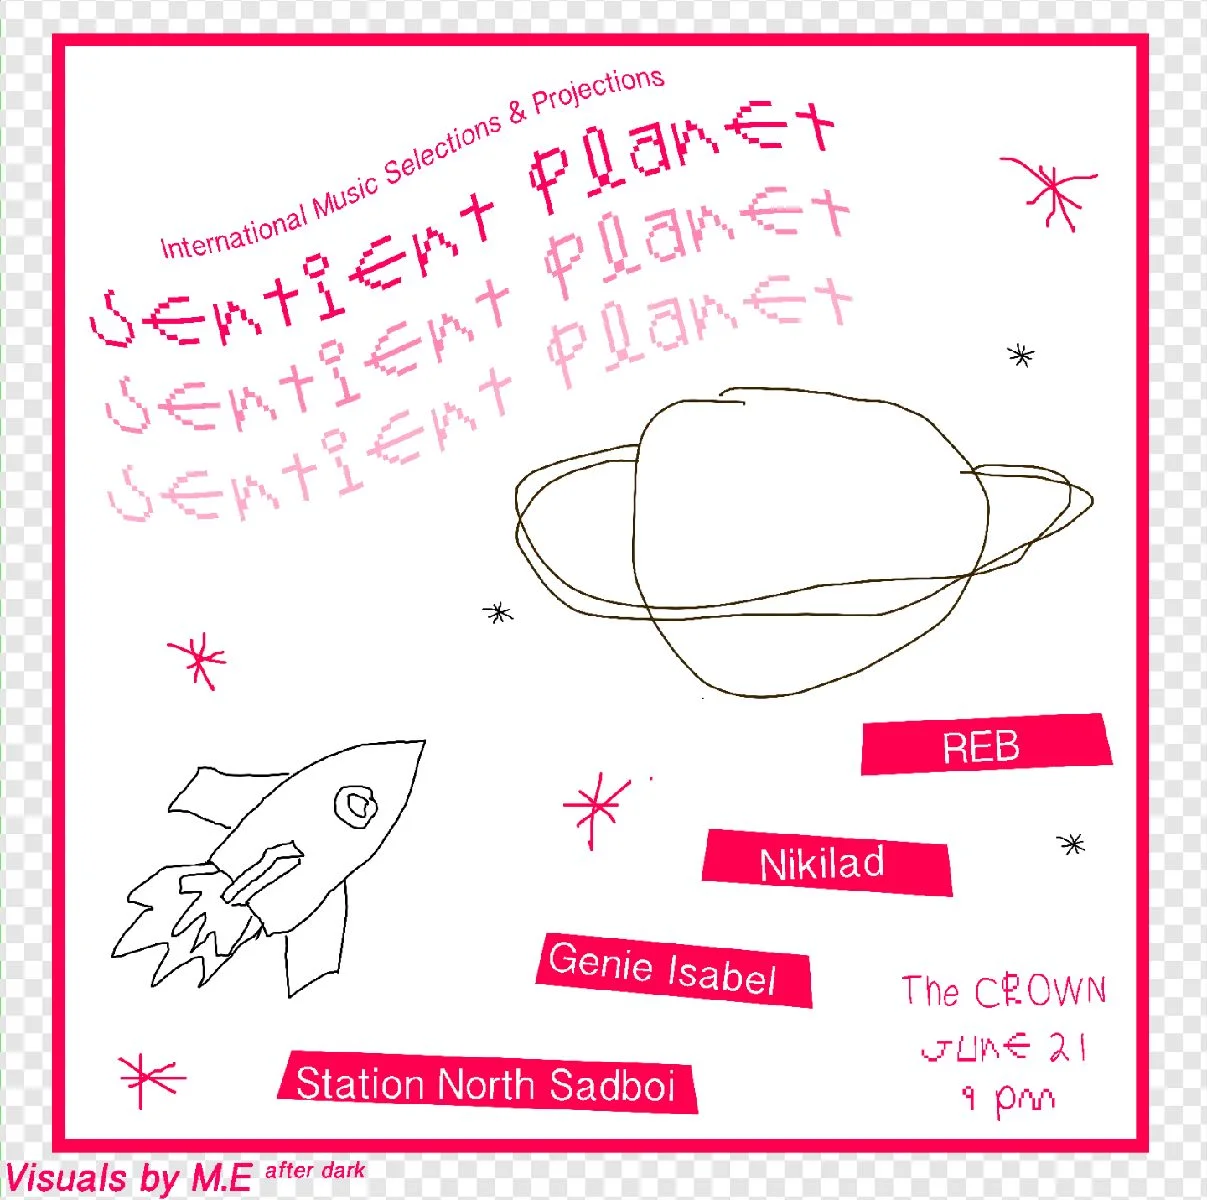 International Music Selections & Projections
Sentient Planet
Sentient Planet
Sentient Planet
REB
Nikilad
Genie Isabel
Station North Sadboi
The CROWN
JUNE 21
9 pm
Visuals by M.E after dark